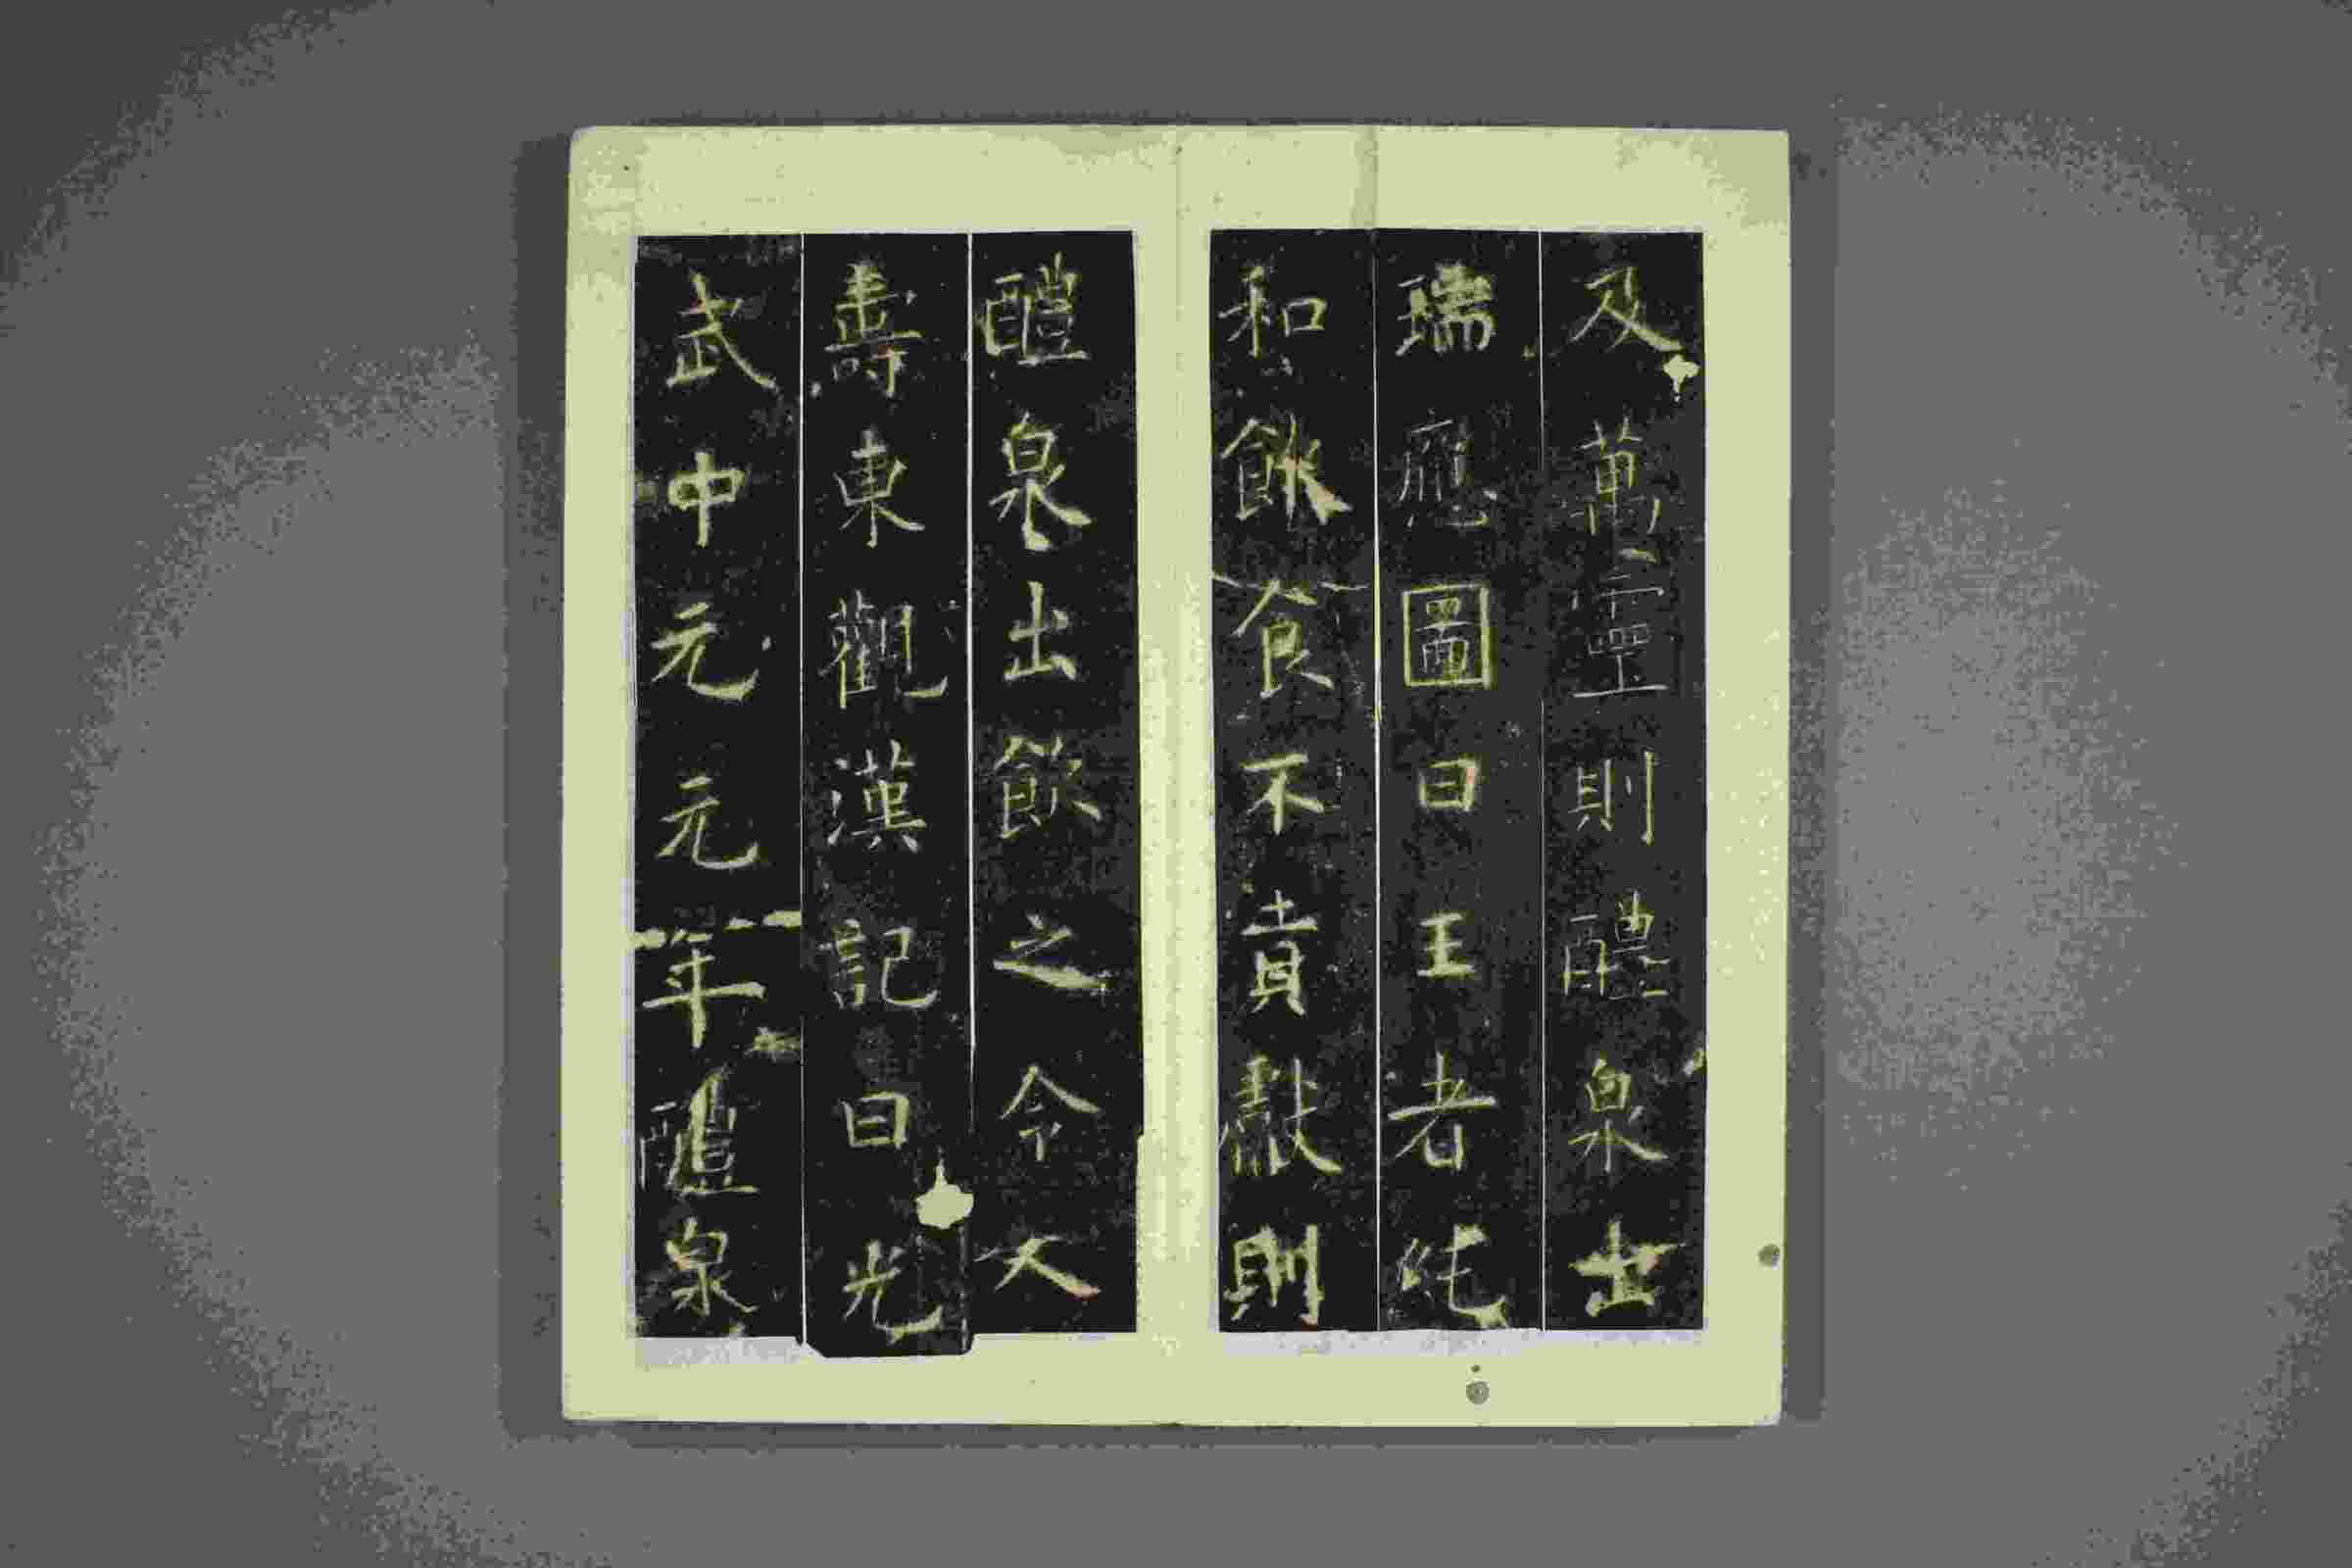 及萬靈則醴泉出
瑞應圖曰王者純
和飲食不貢獻則
醴泉出飲之令人
壽東觀漢記曰光
武中元元年醴泉